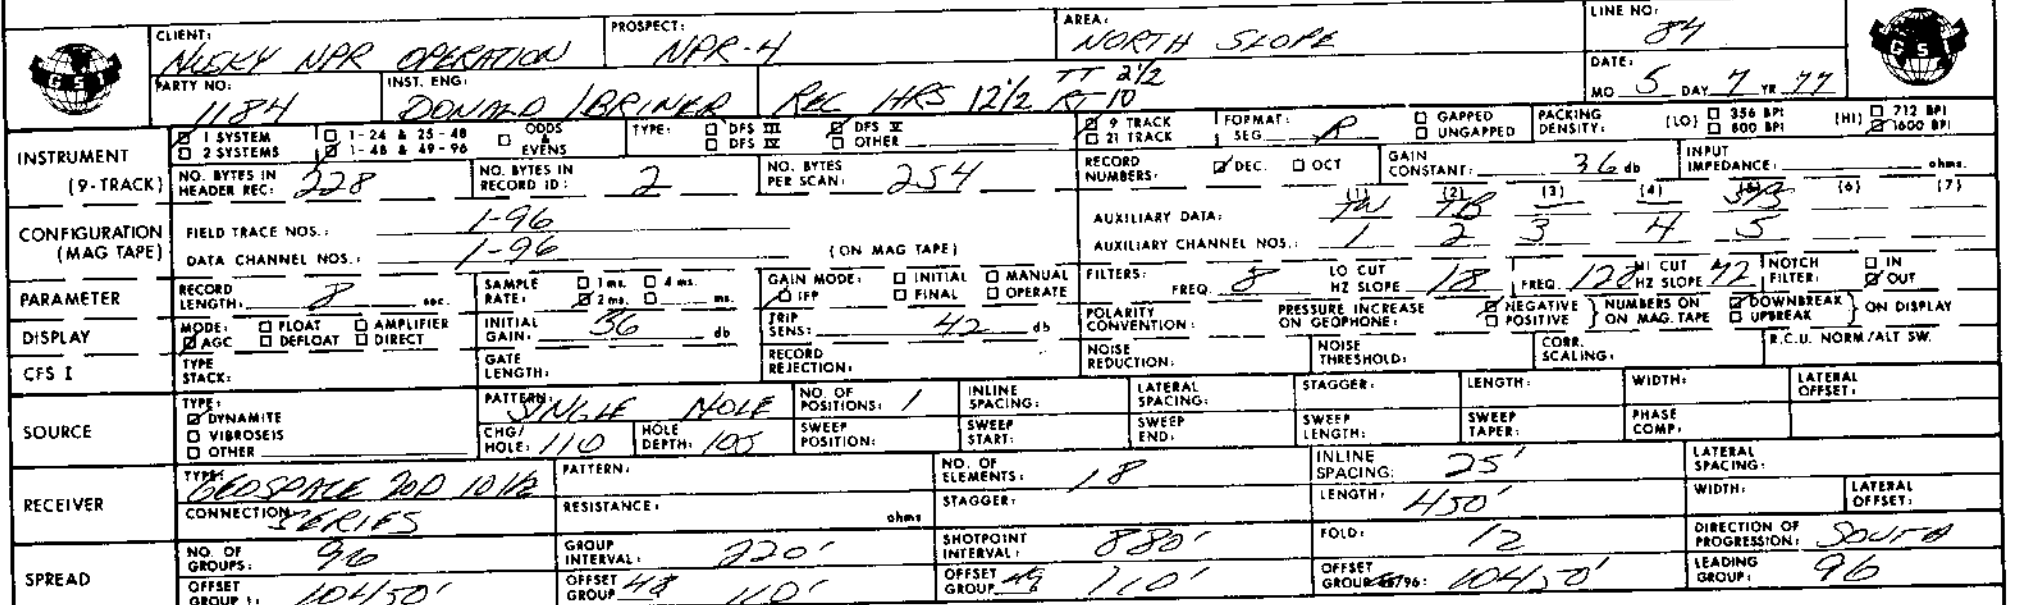 CLIENT: HUSKY NPR OPERATION PROSPECT: NPR-4 AREA: NORTH SLOPE LINE NO: 84
GSI GSI
PARTY NO: 1184 INST. ENG: DONALD IBRINER REC HRS 12 1/2 TT 2 1/2 RT 10 DATE: MO 5 DAY 7 YR 77
INSTRUMENT (9-TRACK) ☑ 1 SYSTEM ☐ 2 SYSTEMS ☐ 1-24 & 25-48 ☑ 1-48 & 49-96 ☐ ODDS & EVENS TYPE: ☐ DFS III ☐ DFS IV ☑ DFS V ☐ OTHER ☑ 9 TRACK ☐ 21 TRACK FORMAT: SEG ☐ GAPPED ☐ UNGAPPED PACKING DENSITY: (LO) ☐ 356 BPI ☐ 800 BPI (HI) ☐ 712 BPI ☑ 1600 BPI
NO. BYTES IN HEADER REC: 228 NO. BYTES IN RECORD ID: 2 NO. BYTES PER SCAN: 254 RECORD NUMBERS: ☑ DEC. ☐ OCT GAIN CONSTANT: 36 db INPUT IMPEDANCE: ohms.
(1) (2) (3) (4) (5) (6) (7)
CONFIGURATION (MAG TAPE) FIELD TRACE NOS.: 1-96 AUXILIARY DATA: TW TB
DATA CHANNEL NOS.: 1-96 (ON MAG TAPE) AUXILIARY CHANNEL NOS.: 1 2 3 4 5
PARAMETER RECORD LENGTH: 8 sec. SAMPLE RATE: ☐ 1 ms. ☐ 4 ms. ☑ 2 ms. ☐ ms. GAIN MODE: ☐ INITIAL ☐ MANUAL ☑ IFP ☐ FINAL ☐ OPERATE FILTERS: FREQ. 8 LO CUT HZ SLOPE 18 FREQ. 128 HI CUT HZ SLOPE 72 NOTCH FILTER: ☐ IN ☑ OUT
DISPLAY MODE: ☐ FLOAT ☐ AMPLIFIER ☑ AGC ☐ DEFLOAT ☐ DIRECT INITIAL GAIN: 36 db TRIP SENS: 42 db POLARITY CONVENTION: PRESSURE INCREASE ON GEOPHONE: ☑ NEGATIVE ☐ POSITIVE } NUMBERS ON ON MAG. TAPE ☑ DOWNBREAK ☐ UPBREAK } ON DISPLAY
CFS I TYPE STACK: GATE LENGTH: RECORD REJECTION: NOISE REDUCTION: NOISE THRESHOLD: CORR. SCALING: R.C.U. NORM/ALT SW.
SOURCE TYPE: ☑ DYNAMITE ☐ VIBROSEIS ☐ OTHER PATTERN: SINGLE HOLE NO. OF POSITIONS: 1 INLINE SPACING: LATERAL SPACING: STAGGER: LENGTH: WIDTH: LATERAL OFFSET:
CHG/HOLE: 110 HOLE DEPTH: 105 SWEEP POSITION: SWEEP START: SWEEP END: SWEEP LENGTH: SWEEP TAPER: PHASE COMP:
RECEIVER TYPE: GEOSPACE 20D 10 HZ PATTERN: NO. OF ELEMENTS: 18 INLINE SPACING: 25' LATERAL SPACING:
CONNECTION: SERIES RESISTANCE: ohms STAGGER: LENGTH: 450' WIDTH: LATERAL OFFSET:
SPREAD NO. OF GROUPS: 96 GROUP INTERVAL: 220' SHOTPOINT INTERVAL: 880' FOLD: 12 DIRECTION OF PROGRESSION: SOUTH
OFFSET GROUP 1: 10450' OFFSET GROUP 48 110' OFFSET GROUP 49 110' OFFSET GROUP 96: 10450' LEADING GROUP: 96